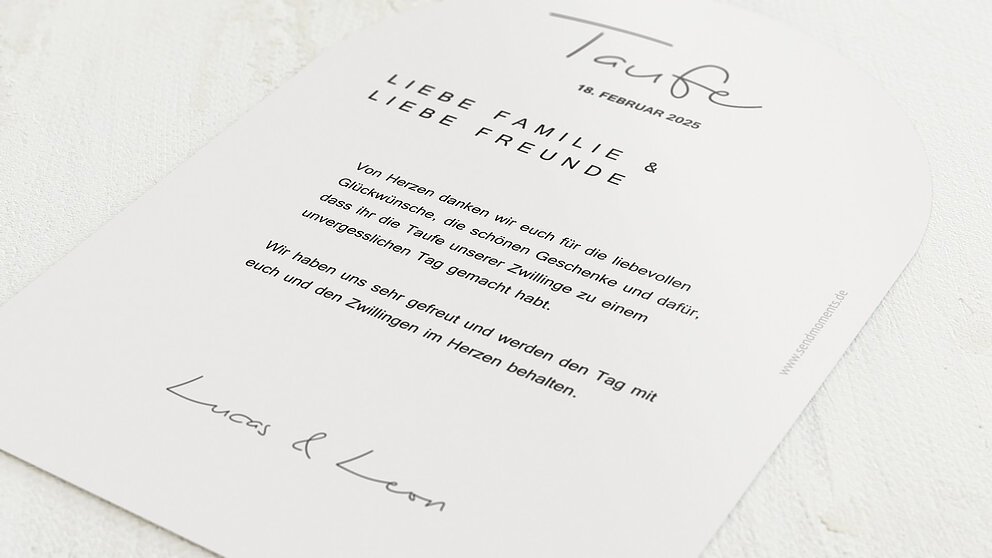 Taufe
18. FEBRUAR 2025
LIEBE FAMILIE &
LIEBE FREUNDE
Von Herzen danken wir euch für die liebevollen
Glückwünsche, die schönen Geschenke und dafür,
dass ihr die Taufe unserer Zwillinge zu einem
unvergesslichen Tag gemacht habt.
Wir haben uns sehr gefreut und werden den Tag mit
euch und den Zwillingen im Herzen behalten.
Lucas & Leon
www.sendmoments.de